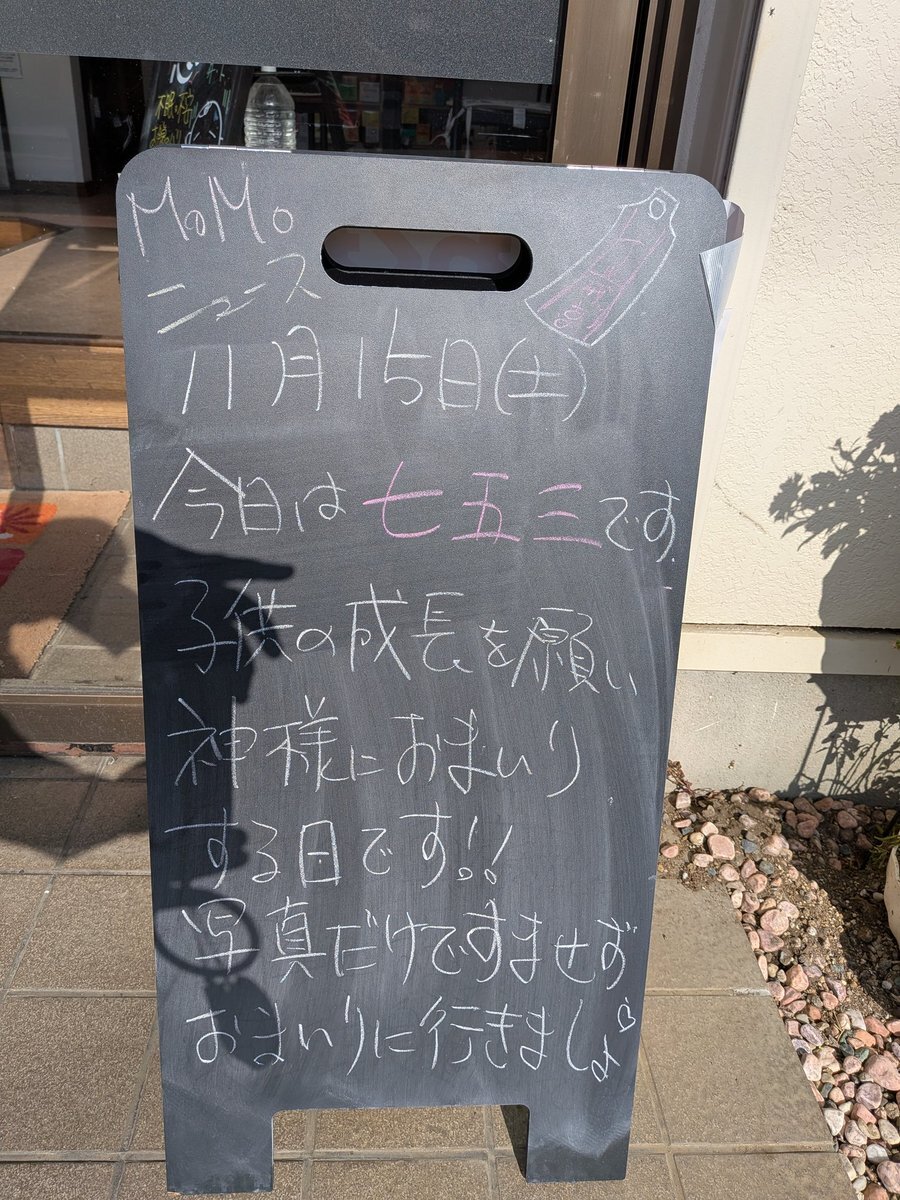 MoMo
ニュース
11月15日(土)
今日は七五三です。
子供の成長を願い
神様におまいり
する日です!!
写真だけですませず
おまいりに行きましょ